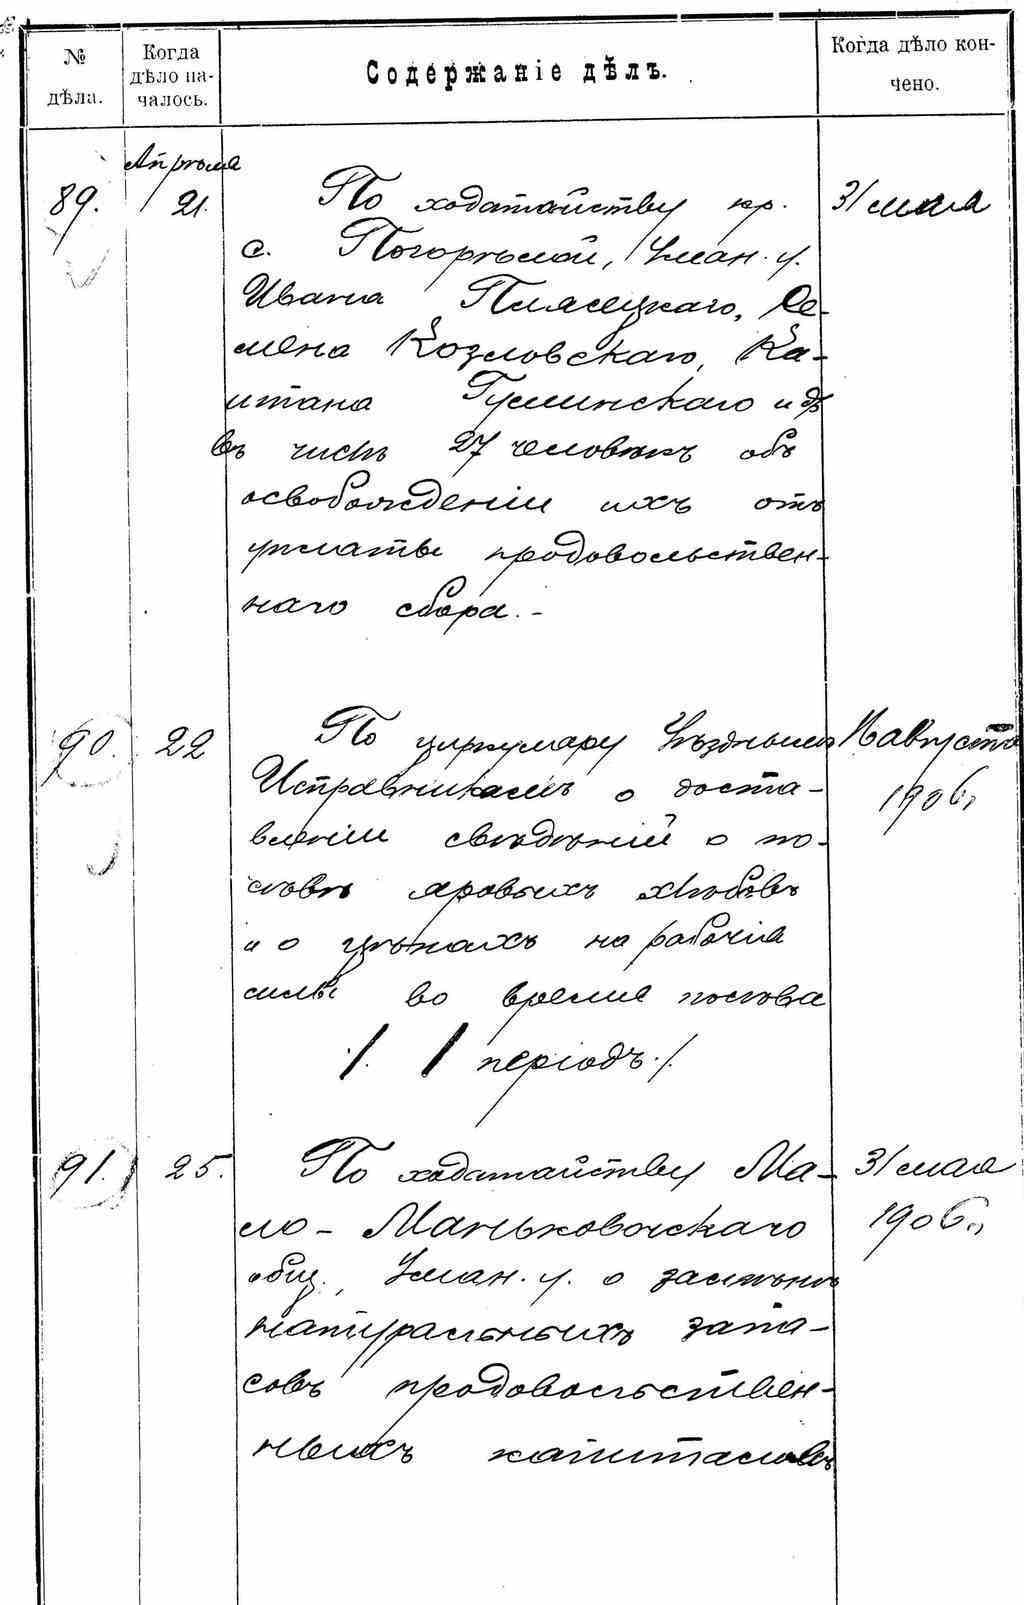 № дѣла.
Когда дѣло началось.
Содержаніе дѣлъ.
Когда дѣло кончено.
Апрѣля
89. 21. По ходатайству кр. 31 мая
с. Погорѣлой, Уман. у.
Ивана Плясецкаго, Се-
мена Козловскаго, Ка-
итана Гуминскаго и др
въ числѣ 27 человѣкъ объ
освобожденіи ихъ отъ
уплаты продовольствен-
наго сбора. -
90. 22 По циркуляру Уѣзднымъ 16 августа
Исправникамъ о доста- 1906 г.
вленіи свѣдѣній о по-
сѣвѣ яровыхъ хлѣбовъ
и о цѣнахъ на рабочія
силы во время посѣва
/. I періодъ ./.
91. 25. По ходатайству Ма- 31 мая
ло - Маньковскаго 1906 г.
общ., Уман. у. о замѣнѣ
натуральныхъ запа-
совъ продовольствен-
ныхъ капиталовъ